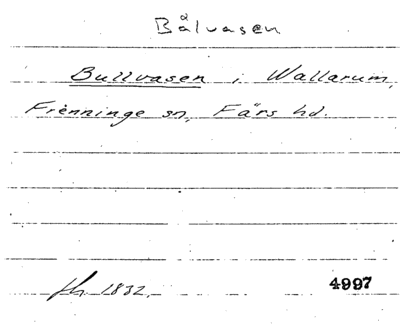 Bålvasen
Bullvasen i Wallarum,
Frenninge sn, Färs hd.
fh. 1832. 4997